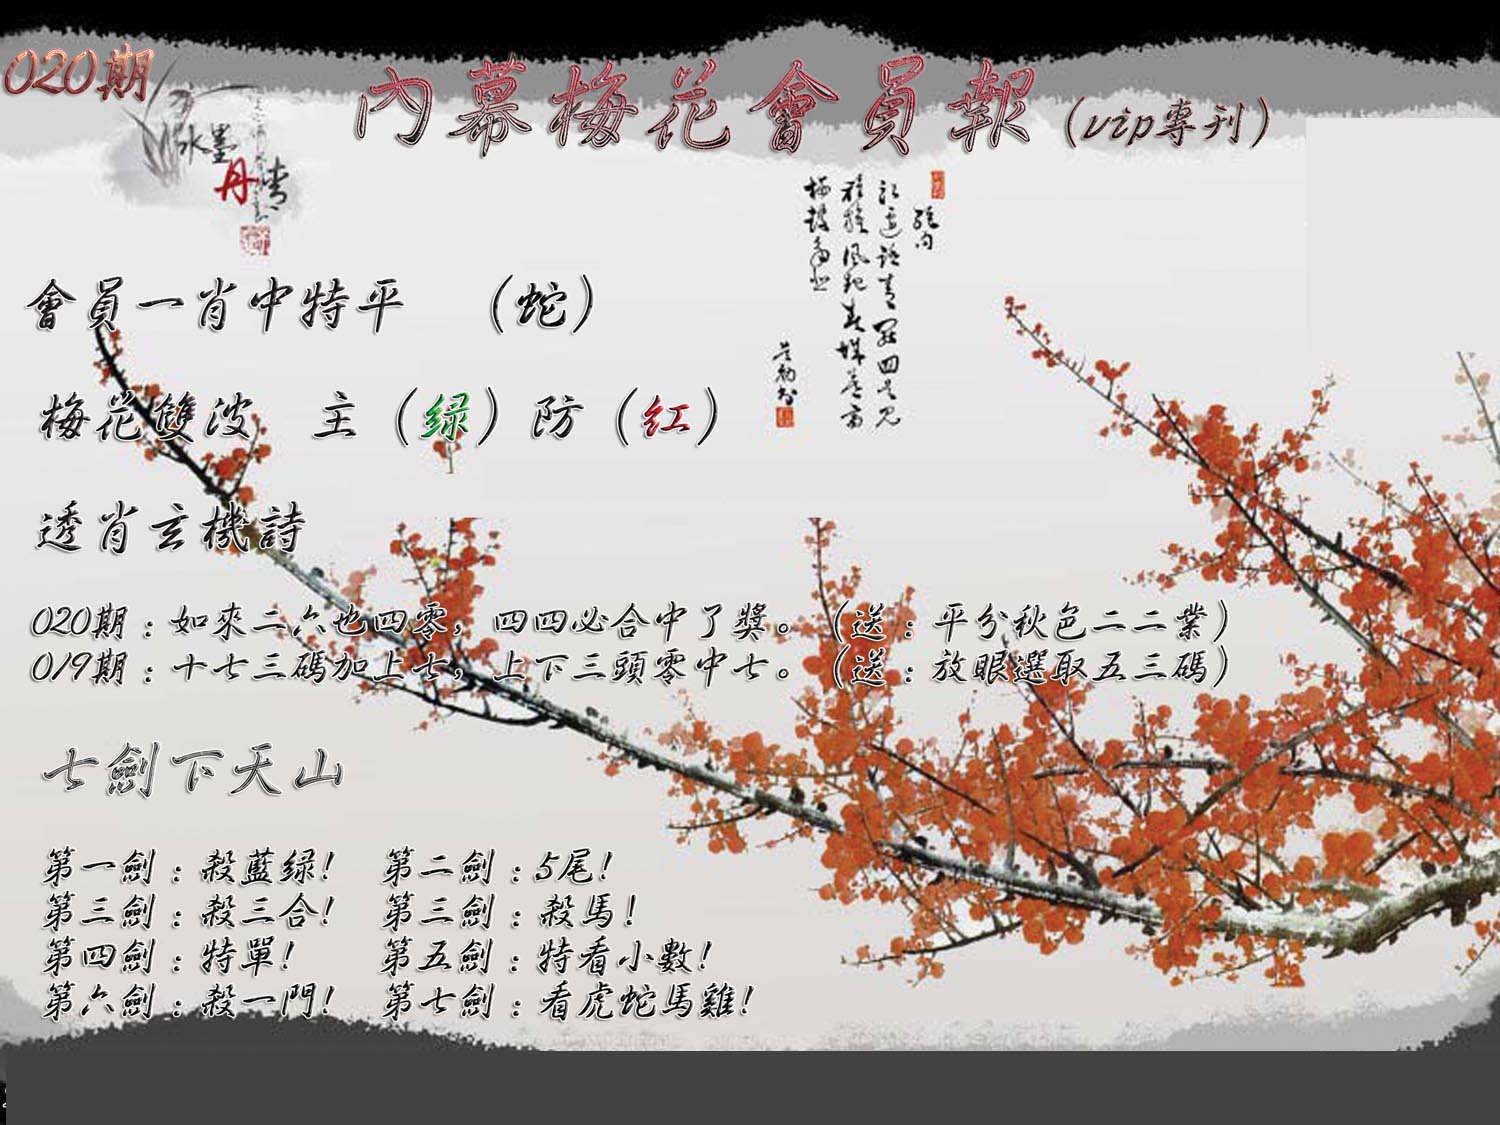 020期
內幕梅花會員報（vip專刊）
水墨
丹青
會員一肖中特平 （蛇）
梅花雙波 主（绿）防（红）
透肖玄機詩
020期：如來二六也四零，四四必合中了獎。（送：平分秋色二二業）
019期：十七三碼加上七，上下三頭零中七。（送：放眼選取五三碼）
七劍下天山
第一劍：殺藍绿！ 第二劍：5尾！
第三劍：殺三合！ 第三劍：殺馬！
第四劍：特單！ 第五劍：特看小數！
第六劍：殺一門！ 第七劍：看虎蛇馬雞！